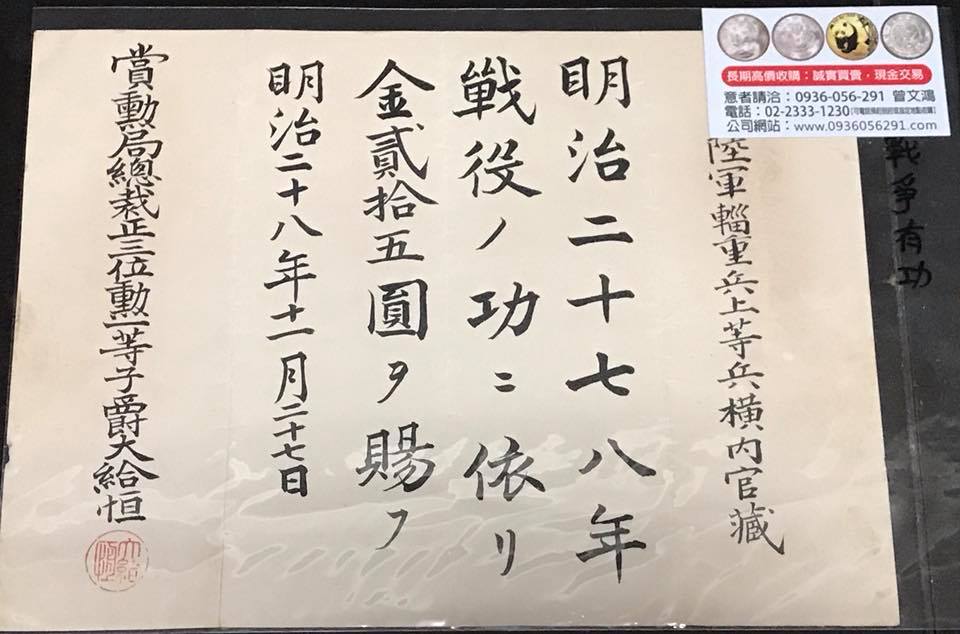 長期高價收購：誠實買賣，現金交易
意者請洽：0936-056-291 曾文鴻
電話：02-2333-1230
公司網站：www.0936056291.com
戰爭有功
陸軍輜重兵上等兵横内官藏
明治二十七八年
戰役ノ功ニ依リ
金貳拾五圓ヲ賜フ
明治二十八年十一月二十七日
賞勲局總裁正三位勲一等子爵大給恒